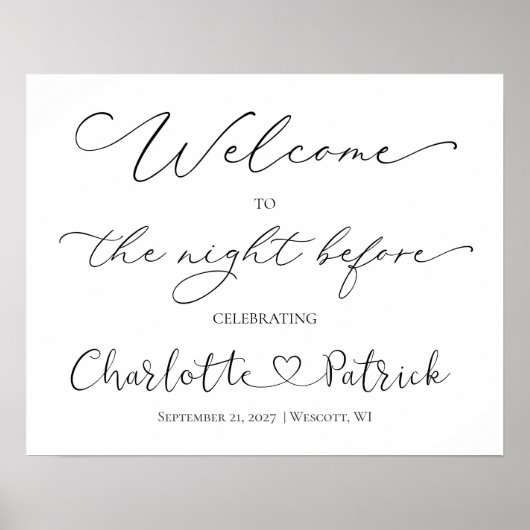 Welcome
TO
the night before
CELEBRATING
Charlotte Patrick
September 21, 2027 | Wescott, WI